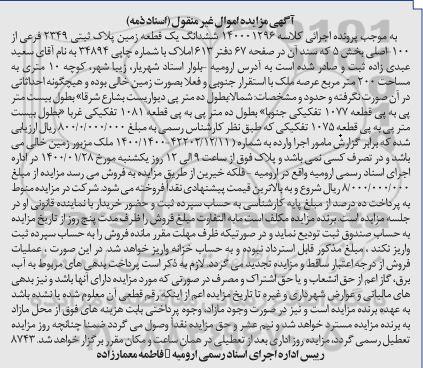 آگهی مزایده اموال غیر منقول (اسناد ذمه)
به موجب پرونده اجرائی کلاسه ۱۴۰۰۰۱۲۹۶ ششدانگ یک قطعه زمین پلاک ثبتی ۲۳۴۹ فرعی از
۱۰۰ اصلی بخش ۵ که سند آن در صفحه ۶۷ دفتر ۶۱۳ املاک با شماره چاپی ۳۴۸۹۴ به نام آقای سعید
عبدی زاده ثبت و صادر شده است به آدرس ارومیه -بلوار استاد شهریار، زیبا شهر، کوچه ۱۰ متری به
مساحت ۲۰۰ متر مربع عرصه ملک با استقرار جنوبی و فعلا بصورت زمین خالی بوده و هیچگونه احداثاتی
در آن صورت نگرفته و حدود و مشخصات: شمالا بطول ده متر پی دیواریست بشارع شرقا" بطول بیست متر
پی به پی قطعه ۱۰۷۷ تفکیکی جنوبا" بطول ده متر پی به پی قطعه ۱۰۸۱ تفکیکی غربا "بطول بیست
متر پی به پی قطعه ۱۰۷۵ تفکیکی که طبق نظر کارشناس رسمی به مبلغ ۸۰۰/۰۰۰/۰۰۰ ریال ارزیابی
شده که برابر گزارش مامور اجرا وارده به شماره ۴۲۲۰۳/۱۲/۱۱-۱۴۰۰/۱۴۰۰ ملک مزبور زمین خالی می
باشد و در تصرف کسی نمی باشد و پلاک فوق از ساعت ۹ الی ۱۲ روز یکشنبه مورخ ۱۴۰۰/۰۱/۲۸ در اداره
اجرای اسناد رسمی ارومیه واقع در ارومیه - فلکه خیرین از طریق مزایده به فروش می رسد مزایده از مبلغ
۸/۰۰۰/۰۰۰/۰۰۰ ریال شروع و به بالاترین قیمت پیشنهادی نقدا فروخته می شود. شرکت در مزایده منوط
به پرداخت ده درصد از مبلغ پایه کارشناسی به حساب سپرده ثبت و حضور خریدار یا نماینده قانونی او در
جلسه مزایده است. برنده مزایده مکلف است مابه التفاوت مبلغ فروش را ظرف مدت پنج روز از تاریخ مزایده
به حساب صندوق ثبت تودیع نماید و در صورتیکه ظرف مهلت مقرر مانده فروش را به حساب سپرده ثبت
واریز نکند ، مبلغ مذکور قابل استرداد نبوده و به حساب خزانه واریز خواهد شد. در این صورت ، عملیات
فروش از درجه اعتبار ساقط و مزایده تجدید می گردد. لازم به ذکر است پرداخت بدهی های مربوط به آب،
برق، گاز اعم از حق انشعاب و یا حق اشتراک و مصرف در صورتی که مورد مزایده دارای آنها باشد و نیز بدهی
های مالیاتی و عوارض شهرداری و غیره تا تاریخ مزایده اعم از اینکه رقم قطعی آن معلوم شده یا نشده باشد
به عهده برنده مزایده است و نیز در صورت وجود مازاد، وجوه پرداختی بابت هزینه های فوق از محل مازاد
به برنده مزایده مسترد خواهد شد و نیم عشر و حق مزایده نقدا وصول می گردد ضمنا چنانچه روز مزایده
تعطیل رسمی گردد، مزایده روز اداری بعد از تعطیلی در همان ساعت و مکان مقرر برگزار خواهد شد. ۸۷۴۳
رییس اداره اجرای اسناد رسمی ارومیه فاطمه معمارزاده